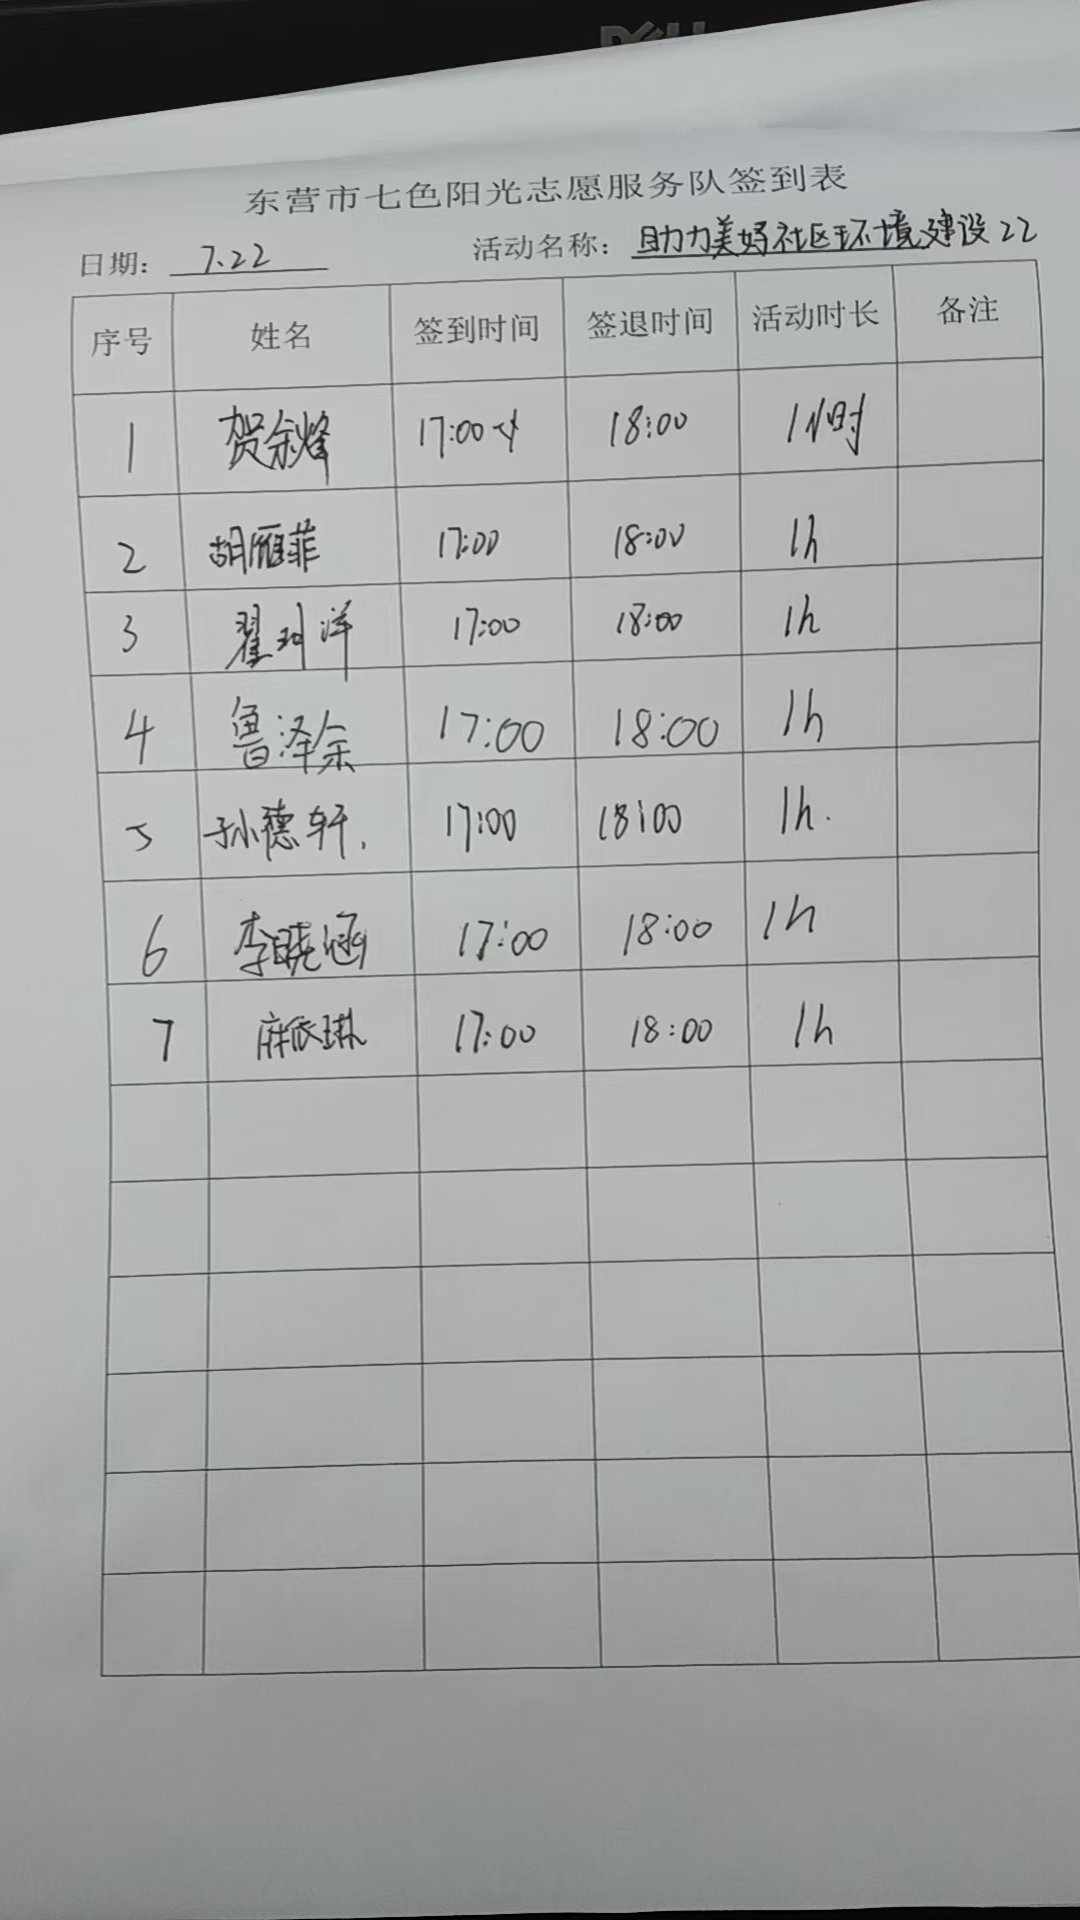 东营市七色阳光志愿服务队签到表
日期: 7.22 活动名称: 助力美好社区环境建设22
序号 姓名 签到时间 签退时间 活动时长 备注
1 贺余烽 17:00 18:00 1小时
2 胡雁菲 17:00 18:00 1h
3 翟珂洋 17:00 18:00 1h
4 鲁泽余 17:00 18:00 1h
5 孙德轩. 17:00 18:00 1h.
6 李晓涵 17:00 18:00 1h
7 17:00 18:00 1h